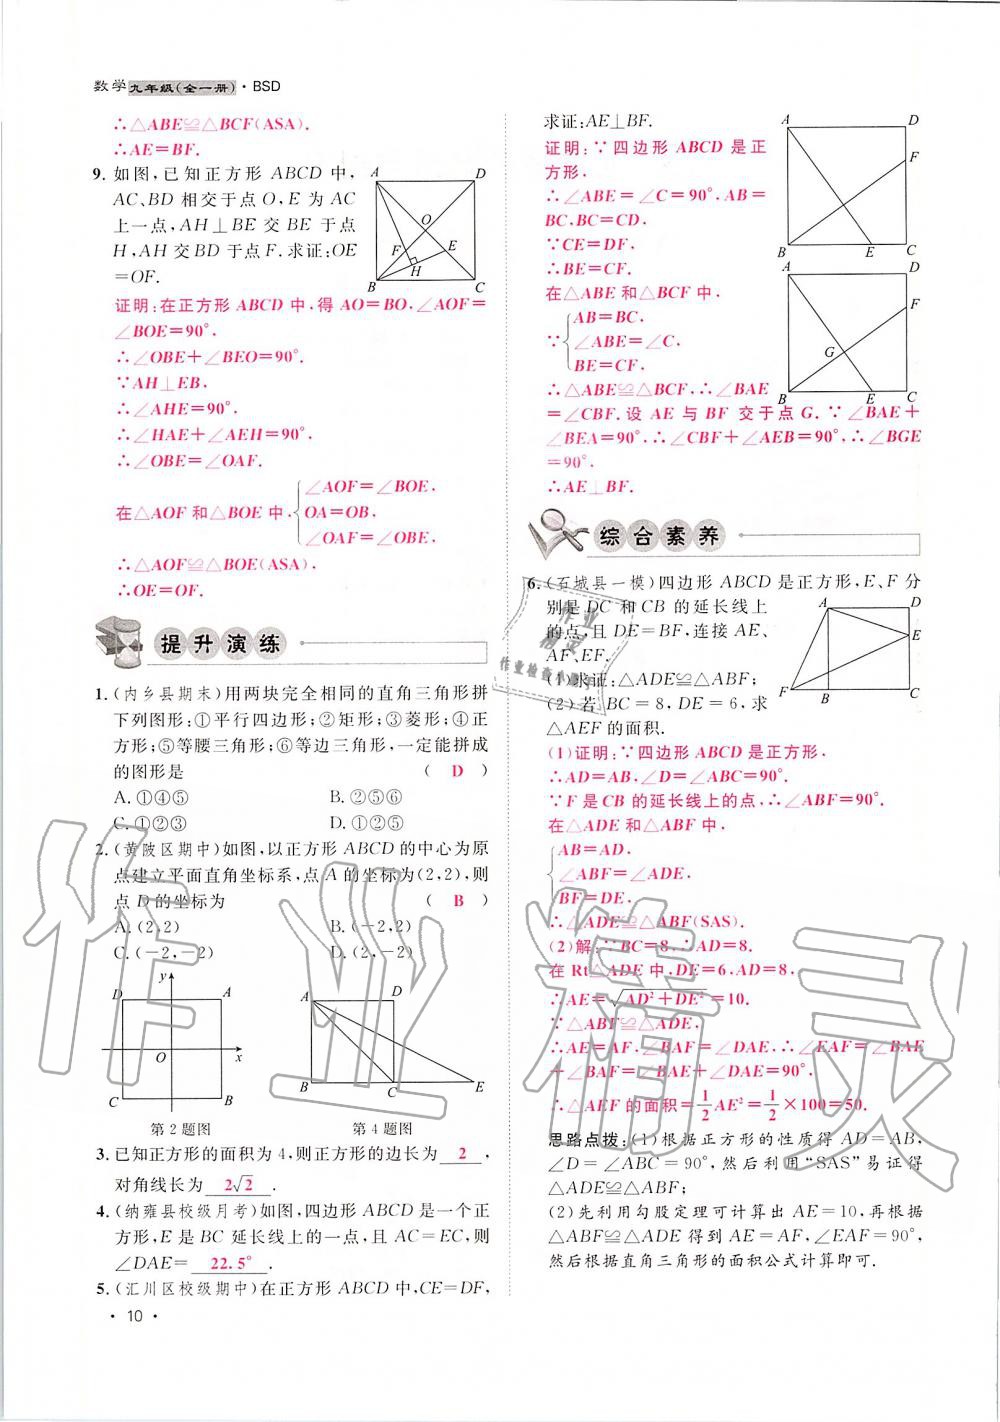 数学九年级(全一册)·BSD
∴△ABE≌△BCF(ASA).
∴AE=BF.
9. 如图,已知正方形 ABCD 中,
AC、BD 相交于点 O,E 为 AC
上一点,AH⊥BE 交 BE 于点
H,AH 交 BD 于点 F. 求证:OE
=OF.
A
D
O
F
E
H
B
C
证明:在正方形 ABCD 中,得 AO=BO,∠AOF=
∠BOE=90°.
∴∠OBE+∠BEO=90°.
∵AH⊥EB,
∴∠AHE=90°.
∴∠HAE+∠AEH=90°.
∴∠OBE=∠OAF.
在△AOF 和△BOE 中,
∠AOF=∠BOE,
OA=OB,
∠OAF=∠OBE,
∴△AOF≌△BOE(ASA).
∴OE=OF.
提升演练
1. (内乡县期末)用两块完全相同的直角三角形拼
下列图形:①平行四边形;②矩形;③菱形;④正
方形;⑤等腰三角形;⑥等边三角形,一定能拼成
的图形是 ( D )
A. ①④⑤ B. ②⑤⑥
C. ①②③ D. ①②⑤
2. (黄陂区期中)如图,以正方形 ABCD 的中心为原
点建立平面直角坐标系,点 A 的坐标为(2,2),则
点 D 的坐标为 ( B )
A. (2,2) B. (-2,2)
C. (-2,-2) D. (2,-2)
y
D
A
O
x
C
B
第 2 题图
A
D
B
C
E
第 4 题图
3. 已知正方形的面积为 4,则正方形的边长为 2 ,
对角线长为 2√2 .
4. (纳雍县校级月考)如图,四边形 ABCD 是一个正
方形,E 是 BC 延长线上的一点,且 AC=EC,则
∠DAE= 22.5° .
5. (汇川区校级期中)在正方形 ABCD 中,CE=DF,
· 10 ·
求证:AE⊥BF.
证明:∵四边形 ABCD 是正
方形,
∴∠ABE=∠C=90°,AB=
BC,BC=CD.
∵CE=DF,
∴BE=CF.
在△ABE 和△BCF 中,
∵
AB=BC,
∠ABE=∠C,
BE=CF,
A
D
F
B
E
C
A
D
F
G
B
E
C
∴△ABE≌△BCF,∴∠BAE
=∠CBF. 设 AE 与 BF 交于点 G. ∵∠BAE+
∠BEA=90°,∴∠CBF+∠AEB=90°,∴∠BGE
=90°.
∴AE⊥BF.
综合素养
6. (石城县一模)四边形 ABCD 是正方形,E、F 分
别是 DC 和 CB 的延长线上
的点,且 DE=BF,连接 AE、
AF、EF.
(1)求证:△ADE≌△ABF;
(2)若 BC=8,DE=6,求
△AEF 的面积.
A
D
E
F
B
C
(1)证明:∵四边形 ABCD 是正方形,
∴AD=AB,∠D=∠ABC=90°.
∵F 是 CB 的延长线上的点,∴∠ABF=90°.
在△ADE 和△ABF 中,
AB=AD,
∠ABF=∠ADE,
BF=DE,
∴△ADE≌△ABF(SAS).
(2)解:∵BC=8,∴AD=8.
在 Rt△ADE 中,DE=6,AD=8,
∴AE=√(AD²+DE²)=10.
∵△ABF≌△ADE,
∴AE=AF,∠BAF=∠DAE,∴∠EAF=∠BAE
+∠BAF=∠BAE+∠DAE=90°.
∴△AEF 的面积=1/2 AE²=1/2×100=50.
思路点拨:(1)根据正方形的性质得 AD=AB,
∠D=∠ABC=90°,然后利用“SAS”易证得
△ADE≌△ABF;
(2)先利用勾股定理可计算出 AE=10,再根据
△ABF≌△ADE 得到 AE=AF,∠EAF=90°,
然后根据直角三角形的面积公式计算即可.
作业精灵